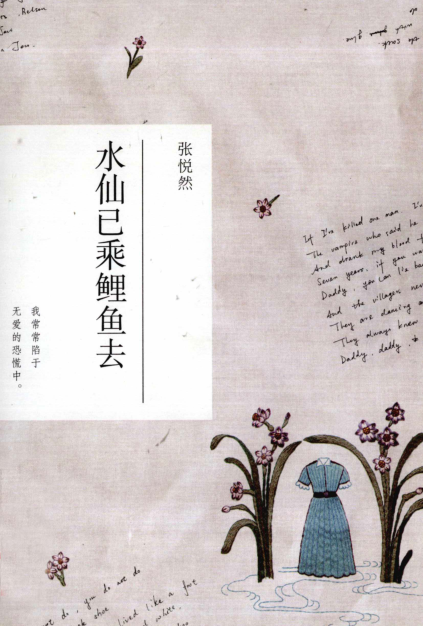 张悦然
水仙已乘鲤鱼去
我常常陷于
无爱的恐慌中。
If I've killed one man, I've
The vampire who said he
And drank my blood f
Seven years, if you wa
Daddy, you can lie ba
And the villagers neve
They are dancing a
They always knew
Daddy, daddy,
ot do, you do not do
shoe
lived like a foot
white